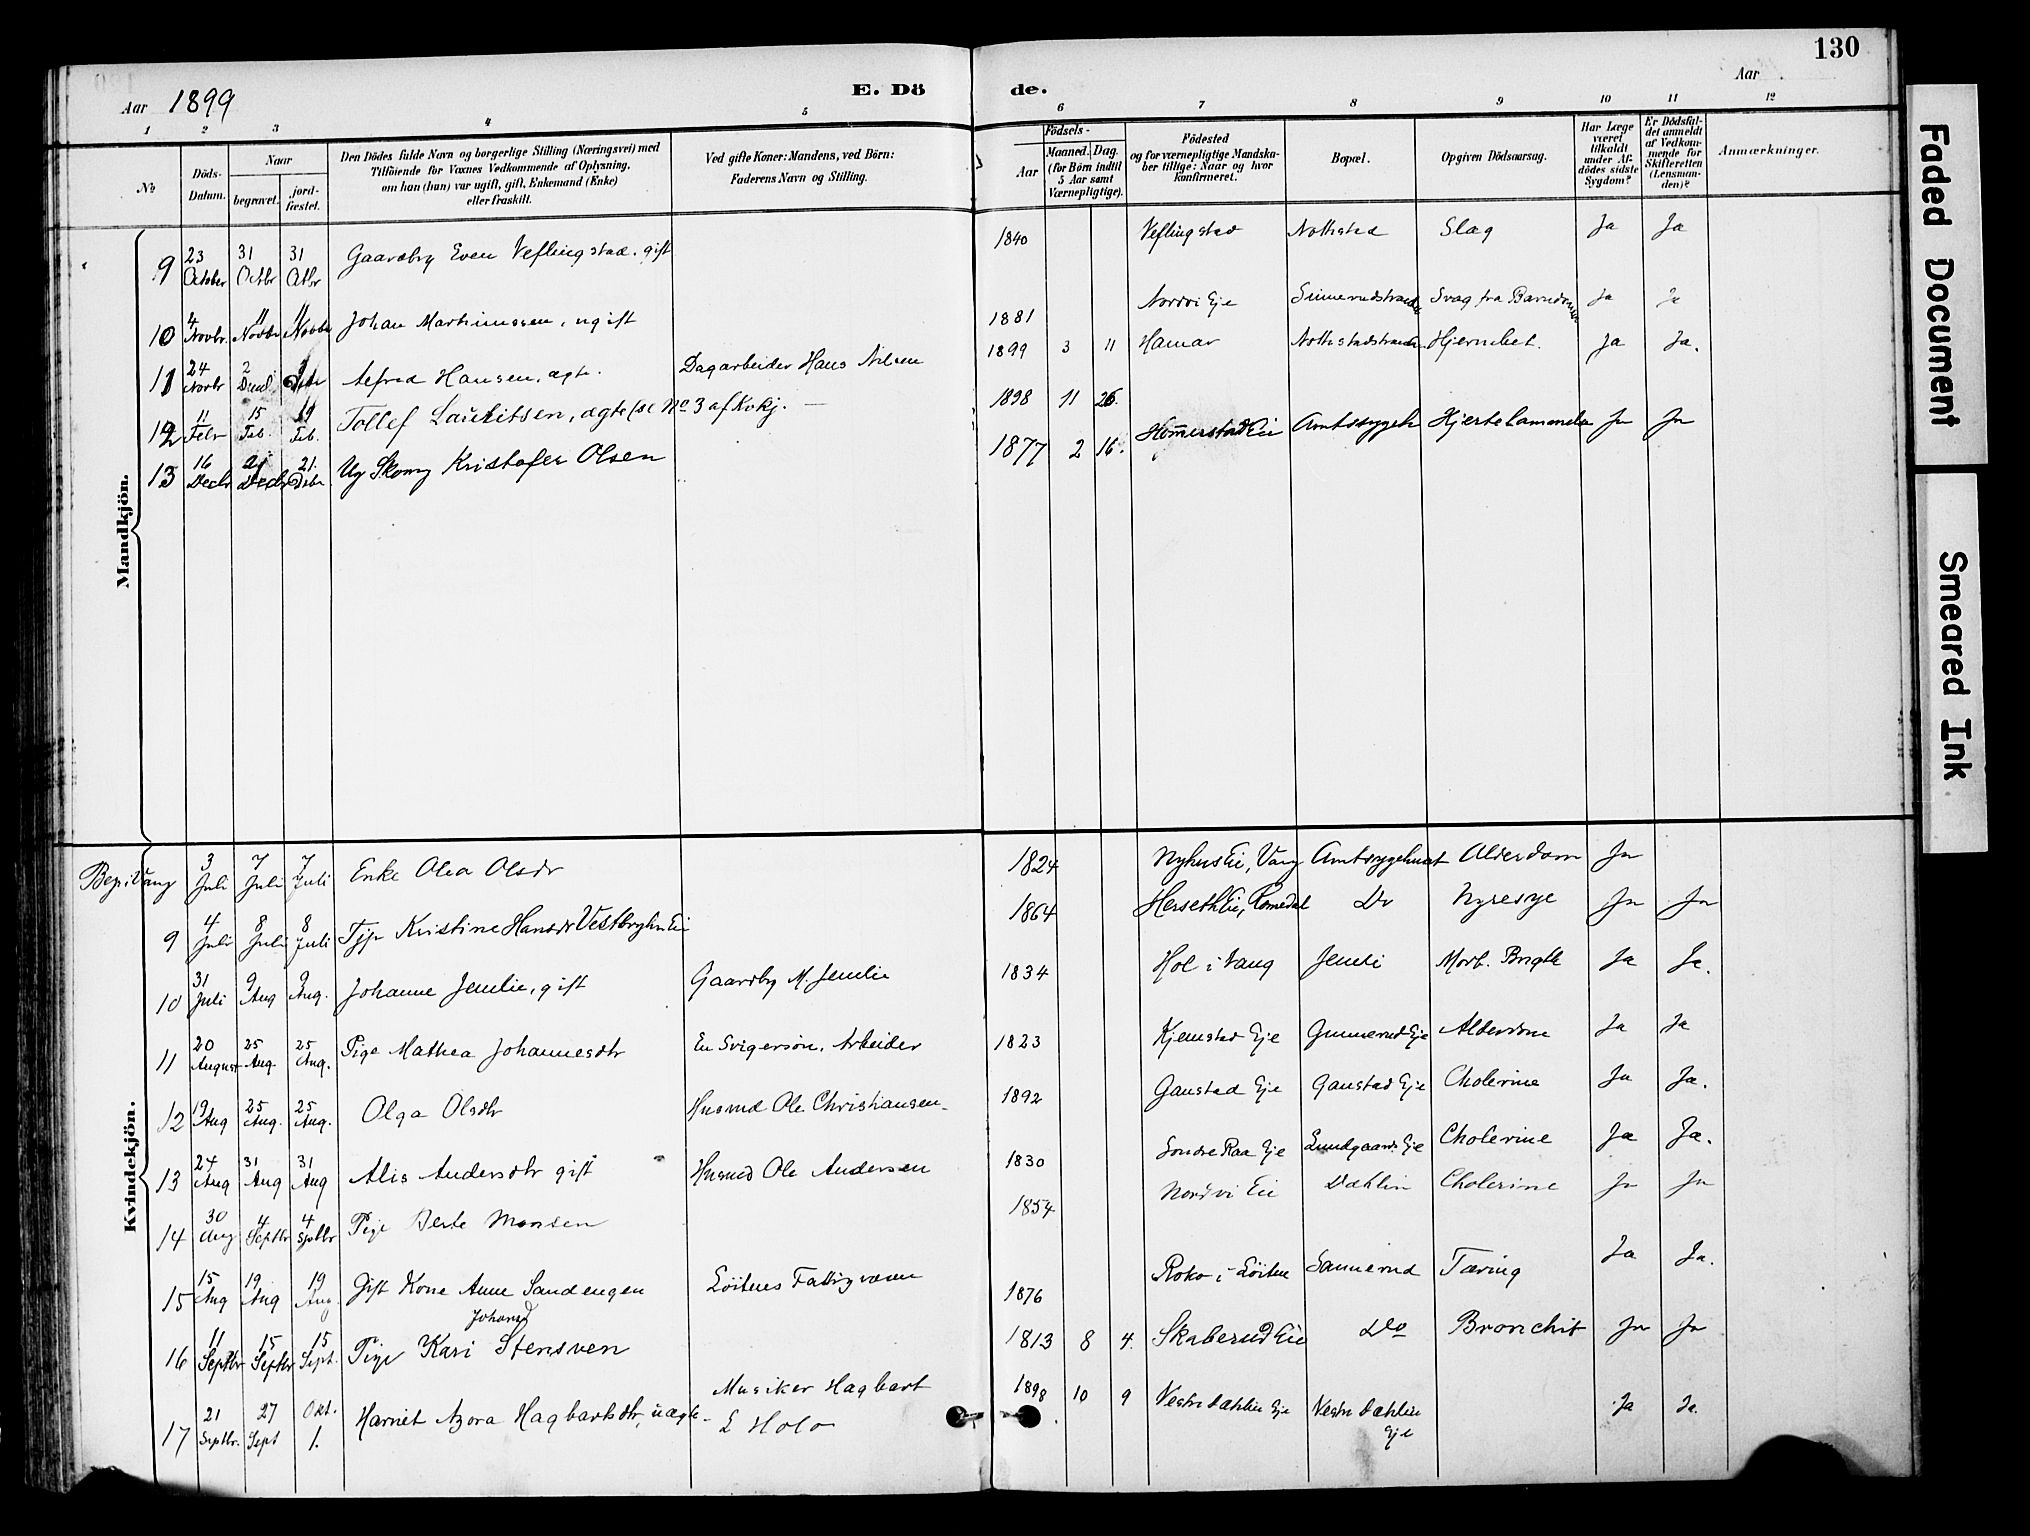 130
Aar 1899
E. Dö
de.
Aar
1 2 3 4 5 6 7 8 9 10 11 12
No
Döds-Datum.
Naar
begravet.
jord-fæstet.
Den Dödes fulde Navn og borgerlige Stilling (Næringsvei) med
Tilföiende for Voxnes Vedkommende af Oplysning,
om han (hun) var ugift, gift, Enkemand (Enke)
eller fraskilt.
Ved gifte Koner: Mandens, ved Börn:
Faderens Navn og Stilling.
Födsels-
Aar
Maaned. Dag.
(for Börn indtil
5 Aar samt
Værnepligtige).
Födested
og for værnepligtige Mandska-
ber tillige: Naar og hvor
konfirmeret.
Bopæl.
Opgiven Dödsaarsag.
Har Læge
været
tilkaldt
under Af-
dödes sidste
Sygdom?
Er Dödsfal-
det anmeldt
af Vedkom-
mende for
Skifteretten
(Lensman-
den)?
Anmærkninger.
Mandkjön.
9 23 October 31 Octbr 31 Octbr Gaardbrg Even Veflingstad. gift 1840 Veflingstad Nothstad Slag Ja Ja
10 4 Novbr. 11 Novbr 11 Novbr Johan Martinussen, ugift 1881 Nordvi Eje Svag fra Barndommen Ja Ja
11 24 Novbr 2 Alfred Hansen, ægte. Dagarbeider Hans Nilsen 1899 3 11 Hamar Hjernebet. Ja Ja.
12 11 Febr 15 Feb. 19 Feb. Tollef Lauritsen, ægte (se No 3 af Kvkj. 1898 11 26.
13 16 Decbr 21 Decbr 21. Debr Ug Skomg Kristofer Olsen 1877 2 16. Hommerstad Eie Amtssygeh Hjertelammelse Ja Ja
Kvindekjön.
3 Juli 7 Juli 7 Juli Enke Olea Olsdr 1824 Nyhus Ei, Vang Amtsygehuset Alderdom Ja
9 4 Juli 8 Juli 8 Juli Kristine Hansdr Vestbyhn Ei 1864 Herseth Eie, Romedal Do Nyresyge Ja Ja
10 31 Juli 9 Aug 9 Aug. Johanne Jemlie, gift Gaardbg M. Jemlie 1834 Hol i Vang Jemli Morb. Brigth Ja Ja.
11 20 August 25 Aug. 25 Aug. Pige Mathea Johannesdtr En Svigersön, Arbeider 1823 Kjemstad Eje Gunnerud Eje Alderdom Ja Ja
12 19 Aug 25 Aug. 25 Aug. Olga Olsdtr Husmd Ole Christiansen 1892 Gaustad Eje Gaustad Eje Cholerine Ja Ja.
13 24 Aug 31 Aug 31 Aug Alis Andersdtr gift Husmd Ole Andersen 1830 Sondre Raa Eje Lundgaard Eje Cholerine Ja Ja.
14 30 Aug 4 Septbr 4 Septbr Pige Berte Monsen 1854 Nordvi Eie Dæhlin Cholerine Ja Ja
15 15 Aug 19 Aug 19 Aug Gift Kone Anne Sandengen Löitens Fattigvæsen 1876 Roko i Löiten Sannerud Tæring Ja Ja.
Johansd
16 11 Septbr 15 Septbr 15 Sept. Pige Kari Stensven 1813 8 4. Skaberud Eie Do Bronchit Ja Ja
17 21 Septbr. 27 Sept Okt. 1. Harriet Azora Hagbartsdtr, uægte Musiker Hagbart 1898 10 9 Vestre Dæhlin Eje Vestre Dæhlin Ja Ja.
E Holo
Eje
Faded Document
Smeared Ink